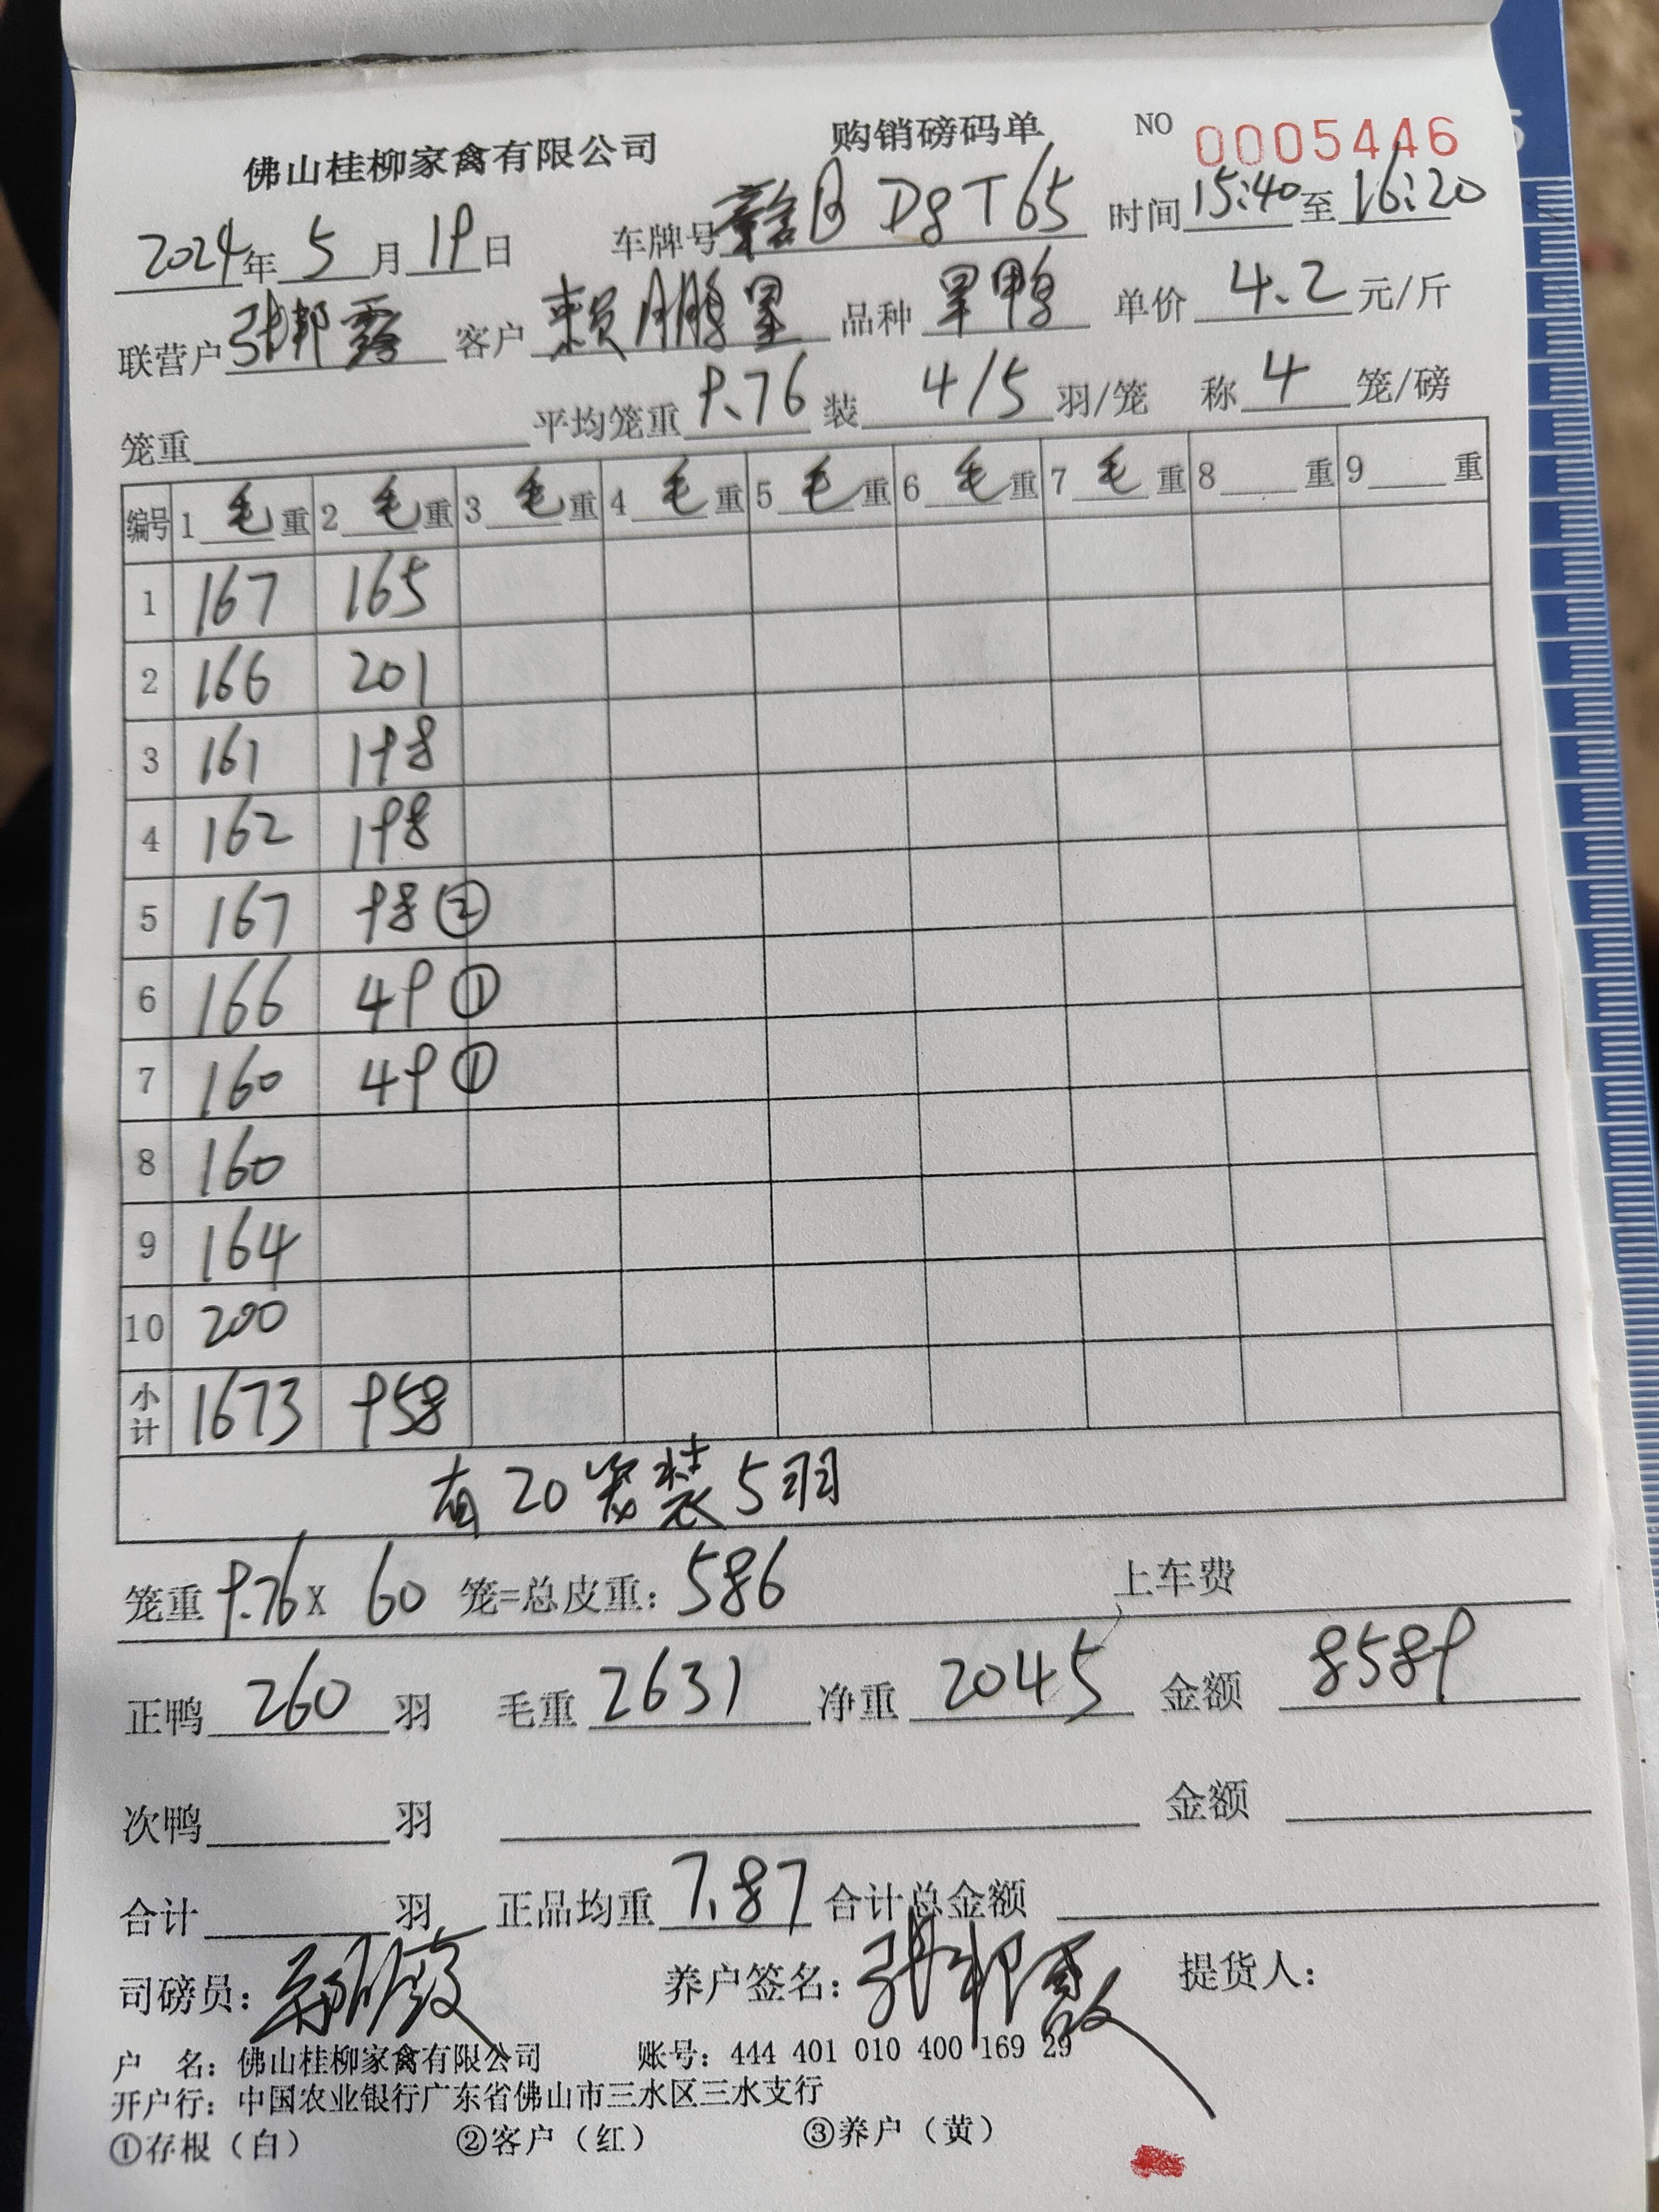 佛山桂柳家禽有限公司 购销磅码单 NO 0005446
2024年 5 月 19 日 车牌号 赣B D8T65 时间 15:40 至 16:20
联营户 张邦露 客户 赖鹏星 品种 单鸭 单价 4.2 元/斤
笼重 平均笼重 9.76 装 4/5 羽/笼 称 4 笼/磅
编号 1 毛 重 2 毛 重 3 毛 重 4 毛 重 5 毛 重 6 毛 重 7 毛 重 8 重 9 重
1 167 165
2 166 201
3 161 198
4 162 198
5 167 98 ②
6 166 49 ①
7 160 49 ①
8 160
9 164
10 200
小计 1673 958
有20笼装5羽
笼重 9.76 X 60 笼=总皮重: 586 上车费
正鸭 260 羽 毛重 2631 净重 2045 金额 8589
次鸭 羽 金额
合计 羽 正品均重 7.87 合计总金额
司磅员: 养户签名: 张邦露 提货人:
户 名: 佛山桂柳家禽有限公司 账号: 444 401 010 400 169 29
开户行: 中国农业银行广东省佛山市三水区三水支行
①存根（白） ②客户（红） ③养户（黄）